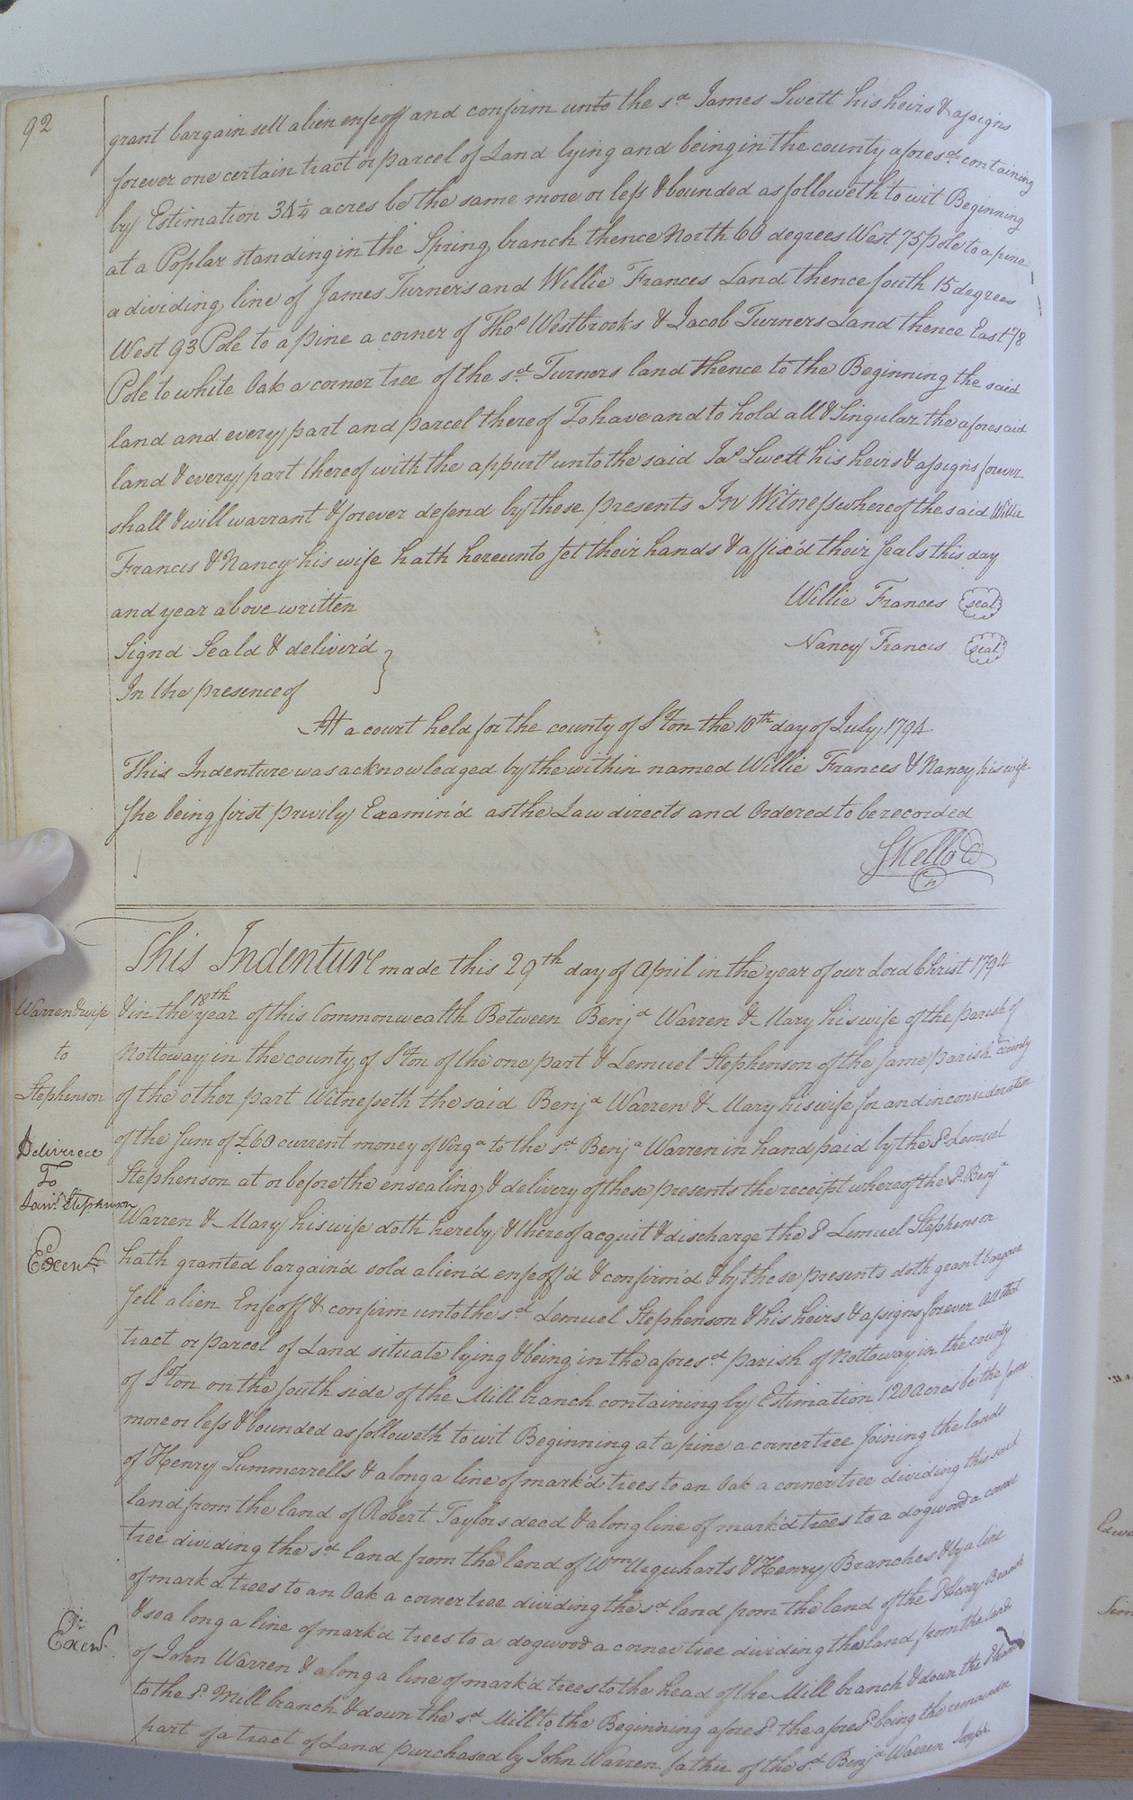 92
grant bargain sell alien enfeoff and confirm unto the sd. James Swett his heirs & assigns
forever one certain tract or parcel of Land lying and being in the county aforesd. containing
by Estimation 34¼ acres be the same more or less & bounded as followeth to wit Beginning
at a Poplar standing in the Spring branch thence North 60 degrees West 75 pole to a pine
a dividing line of James Turner's and Willie Frances Land thence south 15 degrees
West 93 Pole to a pine a corner of Thos Westbrooks & Jacob Turners Land thence East 78
Pole to white Oak a corner tree of the sd. Turners land thence to the Beginning the said
land and every part and parcel thereof To have and to hold all & Singular the aforesaid
land & every part thereof with the appurts unto the said Jas Swett his heirs & assigns forever
shall & will warrant & forever defend by these presents In Witness whereof the said Willie
Frances & Nancy his wife hath hereunto set their hands & affix'd their seals this day
and year above written
Willie Frances seal
Signd Seald & deliver'd
Nancy Frances seal
In the presence of
At a court held for the county of S'Ton the 10th day of July 1794
This Indenture was acknowledged by the within named Willie Frances & Nancy his wife
she being first privily Examin'd as the Law directs and Ordered to be recorded
SKello
This Indenture made this 29th day of April in the year of our Lord Christ 1794
& in the 18th year of this Commonwealth Between Benja Warren & Mary his wife of the parish of
Warren & wife
to
Stephenson
Nottoway in the county of S'Ton of the one part & Lemuel Stephenson of the same parish & county
of the other part Witnesseth the said Benja Warren & Mary his wife for and in consideration
of the sum of £60 current money of Virga to the sd. Benja Warren in hand paid by the sd. Lemuel
Delivered
To
Stephenson
Stephenson at or before the ensealing & delivery of these presents the receipt whereof the sd. Benja
Warren & Mary his wife doth hereby & thereof acquit & discharge the sd Lemuel Stephenson
Exend.
hath granted bargain'd sold alien'd enfeoff'd & confirm'd & by these presents doth grant bargain
sell alien Enfeoff & confirm unto the sd. Lemuel Stephenson & his heirs & assigns forever All that
tract or parcel of Land situate lying & being in the aforesd. parish of Nottoway in the county
of S'Ton on the south side of the Mill branch containing by Estimation 120 acres be the same
more or less & bounded as followeth to wit Beginning at a pine a corner tree joining the lands
of Henry Summerrells & along a line of mark'd trees to an Oak a corner tree dividing this said
land from the land of Robert Taylors decd & along line of mark'd trees to a dogwood a corner
tree dividing the sd. land from the land of Wm Urquharts & Henry Branches & by a line
of mark'd trees to an Oak a corner tree dividing the sd. land from the land of the sd Henry Branch
& sea long a line of mark'd trees to a dogwood a corner tree dividing the land from the land
Exend.
of John Warren & along a line of mark'd trees to the head of the Mill branch & down the
to the sd. Mill branch & down the sd. Mill to the Beginning aforesd. the aforesd. being the remainder
part of a tract of Land purchased by John Warren father of the sd. Benja Warren